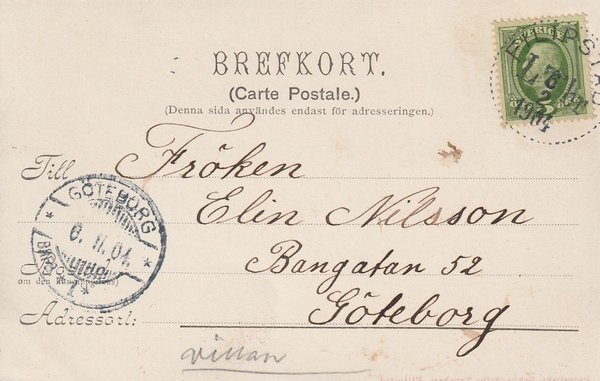 BREFKORT.
(Carte Postale.)
(Denna sida användes endast för adresseringen.)
SVERIGE
1904
Till Fröken
Elin Nilsson
Bangatan 52
Göteborg
GÖTEBORG
6. 2. 04
Adressort:
villan